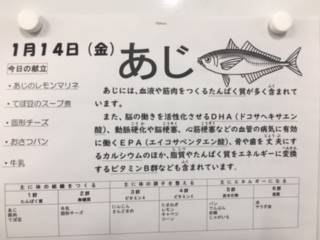 1月14日（金）
あじ
今日の献立
・あじのレモンマリネ
・てぼ豆のスープ煮
・固形チーズ
・おさつパン
・牛乳
あじには、血液や筋肉をつくるたんぱく質が多く含まれて
います。
また、脳の働きを活性化させるDHA（ドコサヘキサエン
酸）、動脈硬化や脳梗塞、心筋梗塞などの血管の病気に有効
に働くEPA（エイコサペンタエン酸）、骨や歯を丈夫にす
るカルシウムのほか、脂質やたんぱく質をエネルギーに変換
するビタミンB群なども含まれています。
主に体の組織をつくる 主に体の調子を整える 主にエネルギーになる
1群 2群 3群 4群 5群 6群
たんぱく質 無機質 ビタミンA ビタミンC 炭水化物 脂質
あじ 牛乳 にんじん たまねぎ パン 油
豚肉 固形チーズ さんどまめ レモン でんぷん
てぼ豆 キャベツ 砂糖
コーン じゃがいも